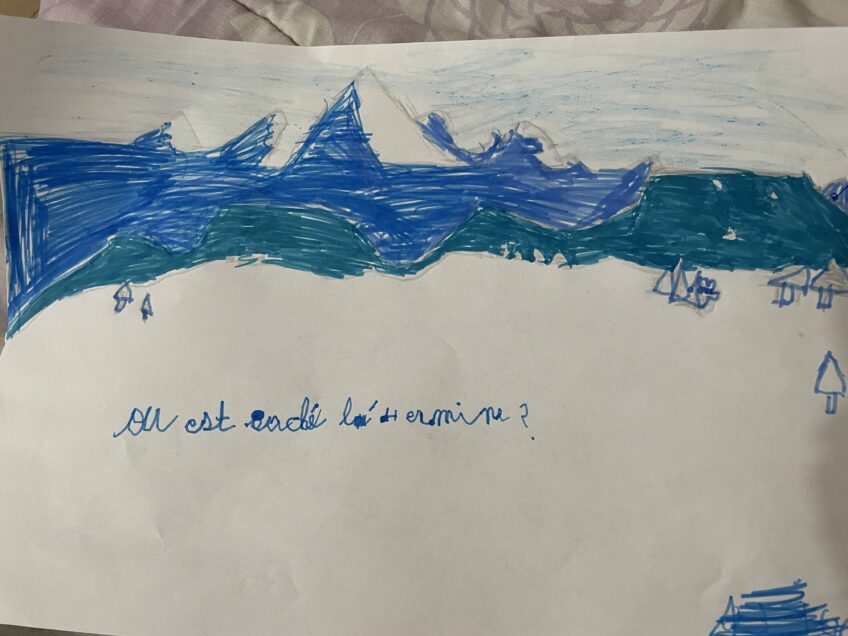 Ou est caché l'hermine ?